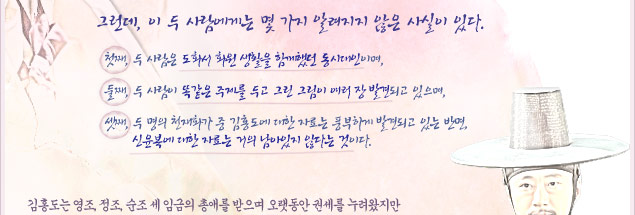 그런데, 이 두 사람에게는 몇 가지 알려지지 않은 사실이 있다.
첫째, 두 사람은 도화서 화원 생활을 함께했던 동시대인이며,
둘째, 두 사람이 똑같은 주제를 두고 그린 그림이 여러 장 발견되고 있으며,
셋째, 두 명의 천재화가 중 김홍도에 대한 자료는 풍부하게 발견되고 있는 반면,
신윤복에 대한 자료는 거의 남아있지 않다는 것이다.
김홍도는 영조, 정조, 순조 세 임금의 총애를 받으며 오랫동안 권세를 누려왔지만